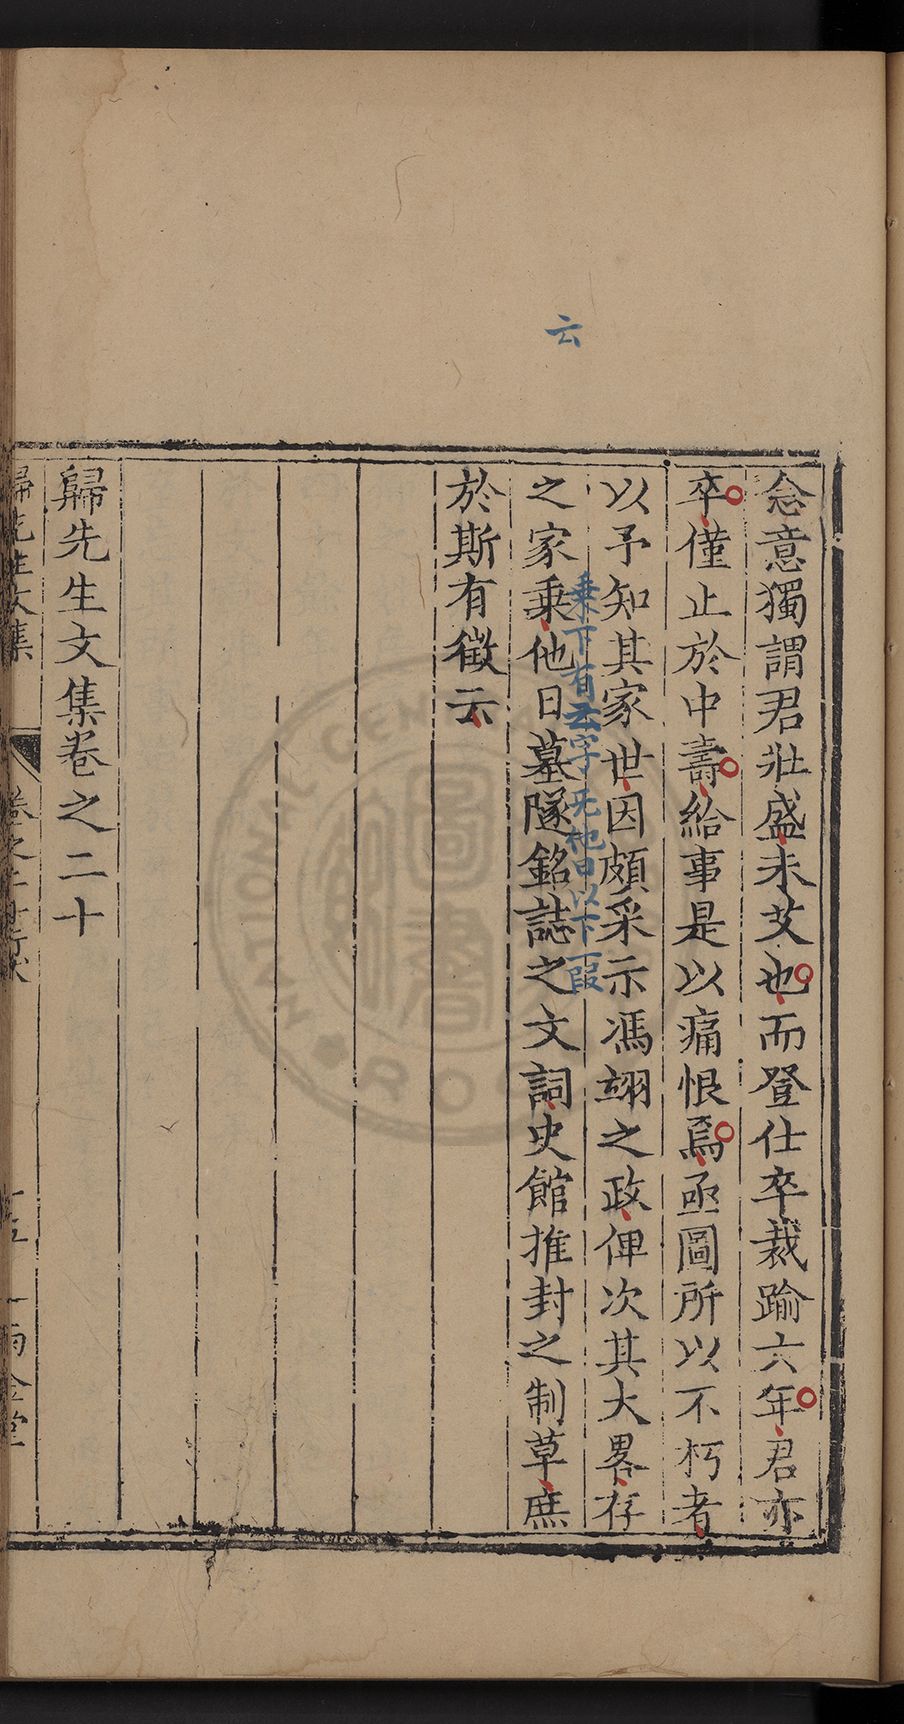 云
念意獨謂君壯盛未艾也而登仕卒裁踰六年君亦
卒僅止於中壽給事是以痛恨焉亟圖所以不朽者
以予知其家世因頗采示馮翊之政俾次其大畧存
乗下有云字无他曰以下一段
之家乗他日墓隧銘誌之文詞史館推封之制草庶
於斯有徵云
歸先生文集卷之二十
歸先生文集 卷之二十 世家 十五 一雨金堂
圖書